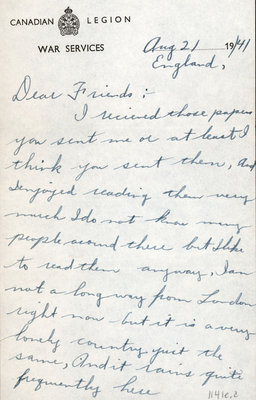 CANADIAN LEGION
WAR SERVICES
Aug 21 1941
England,
Dear Friends:
I recieved those papers
you sent me or at least I
think you sent them, And
I enjoyed reading them very
much I do not know many
people around there but I like
to read them anyway, I am
not a long way from London
right now but it is a very
lonely country just the
same, And it rains quite
frequently here
1141e.2